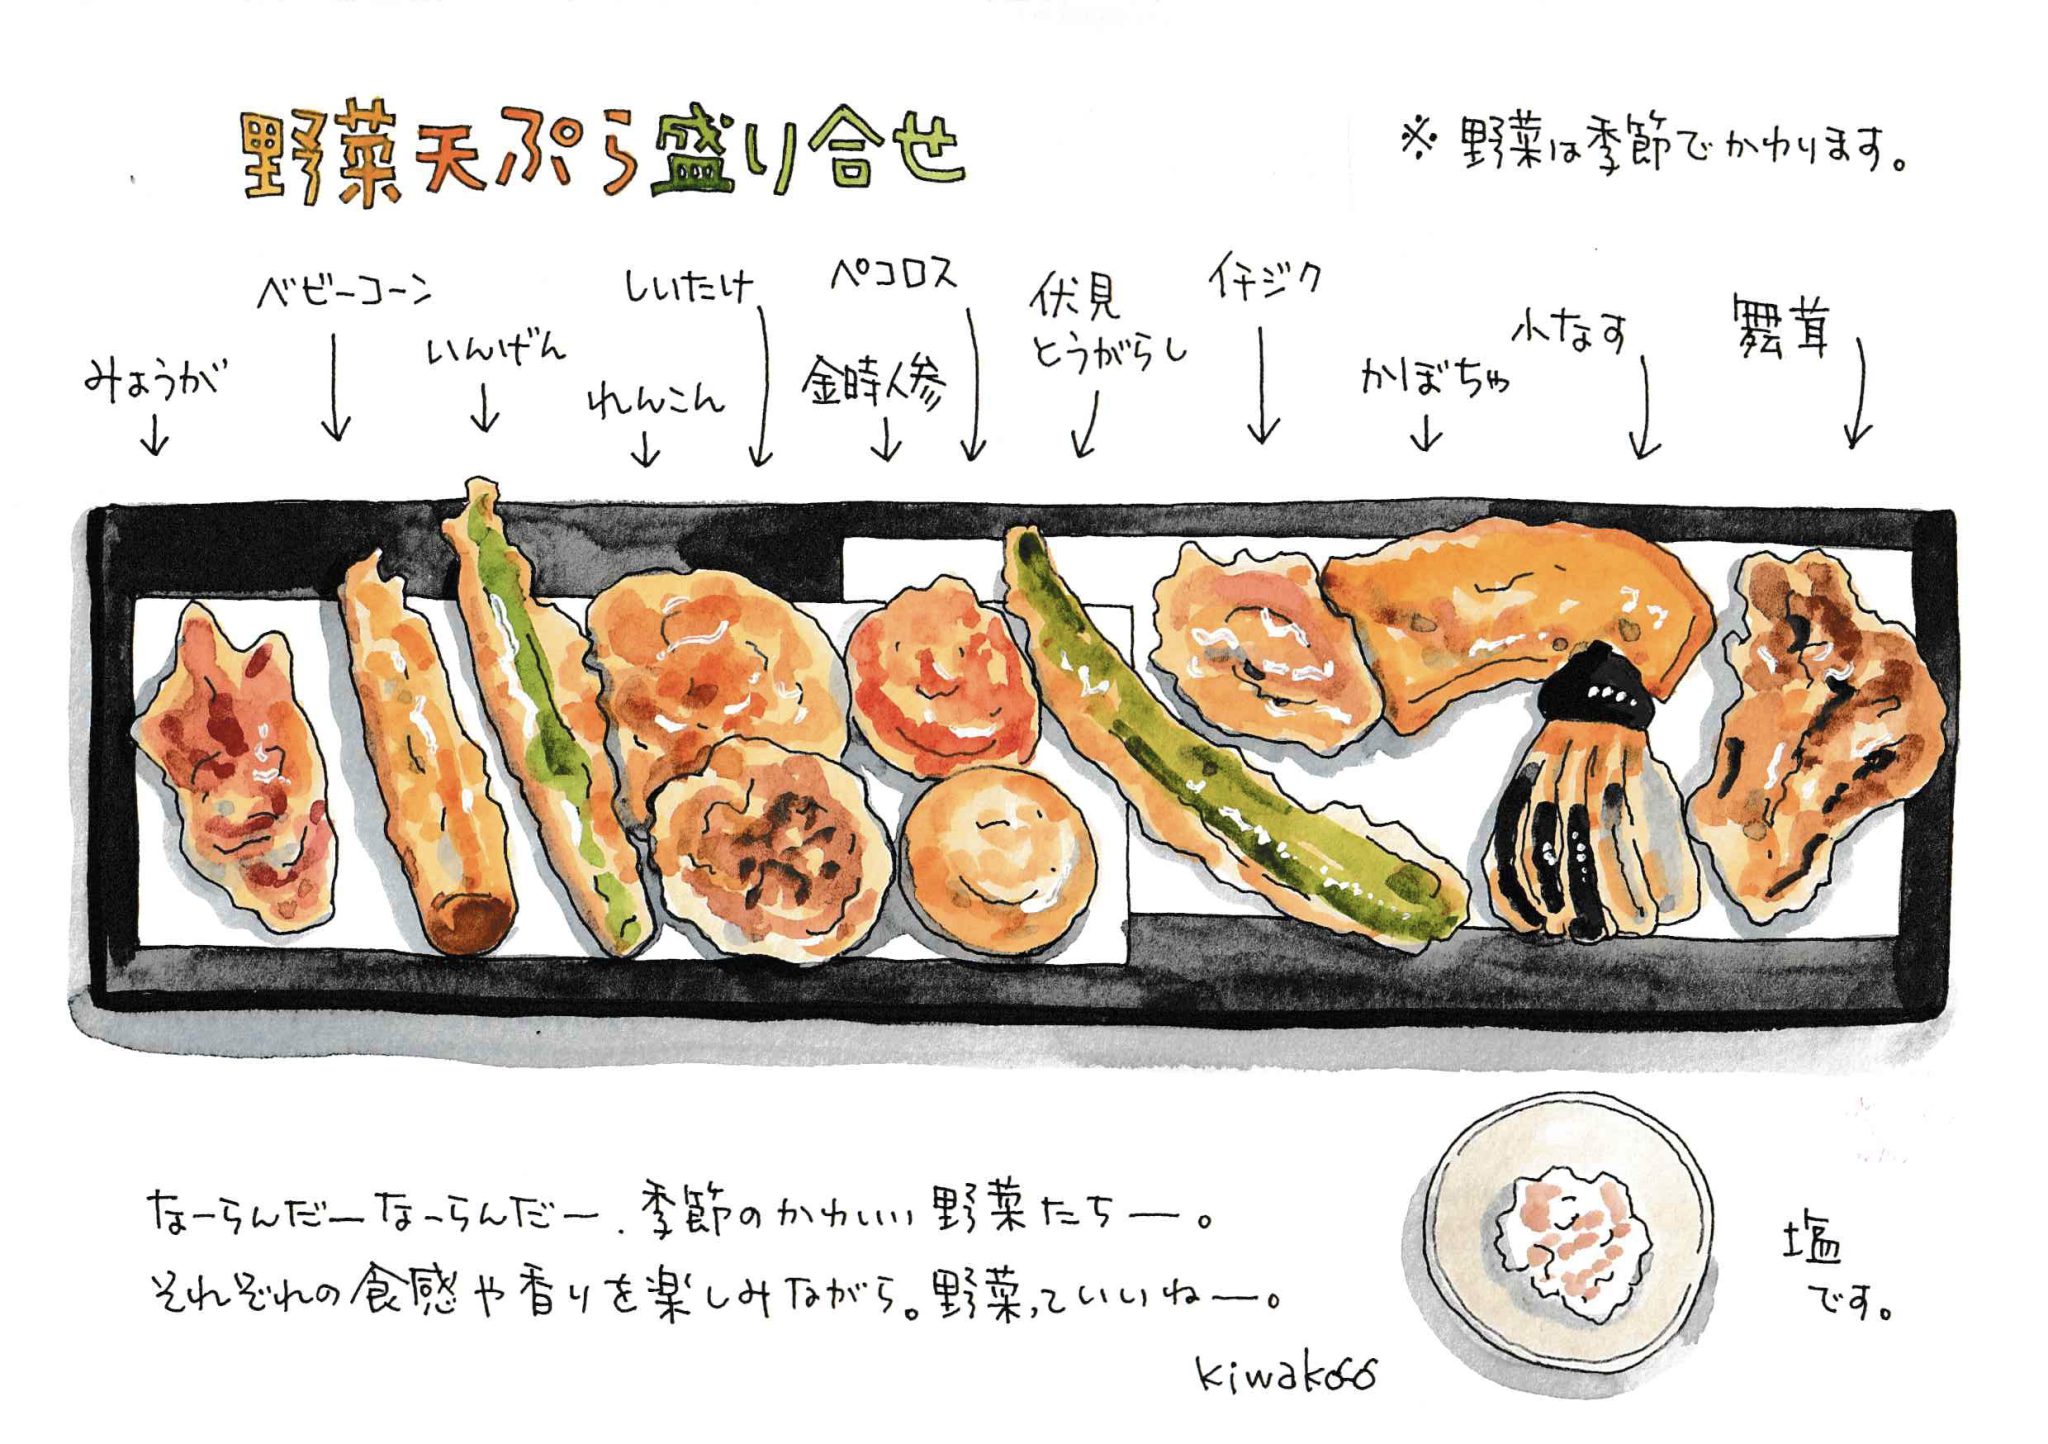 野菜天ぷら盛り合せ
※野菜は季節でかわります。
みょうが
ベビーコーン
いんげん
れんこん
しいたけ
金時人参
ペコロス
伏見
とうがらし
イチジク
かぼちゃ
小なす
舞茸
なーらんだーなーらんだー、季節のかわいい野菜たちー。
それぞれの食感や香りを楽しみながら。野菜っていいねー。
kiwakoco
塩
です。